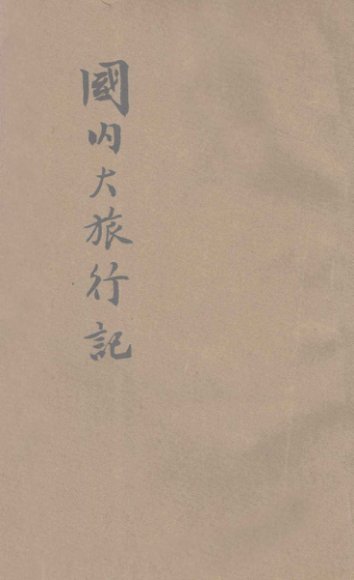 國內大旅行記